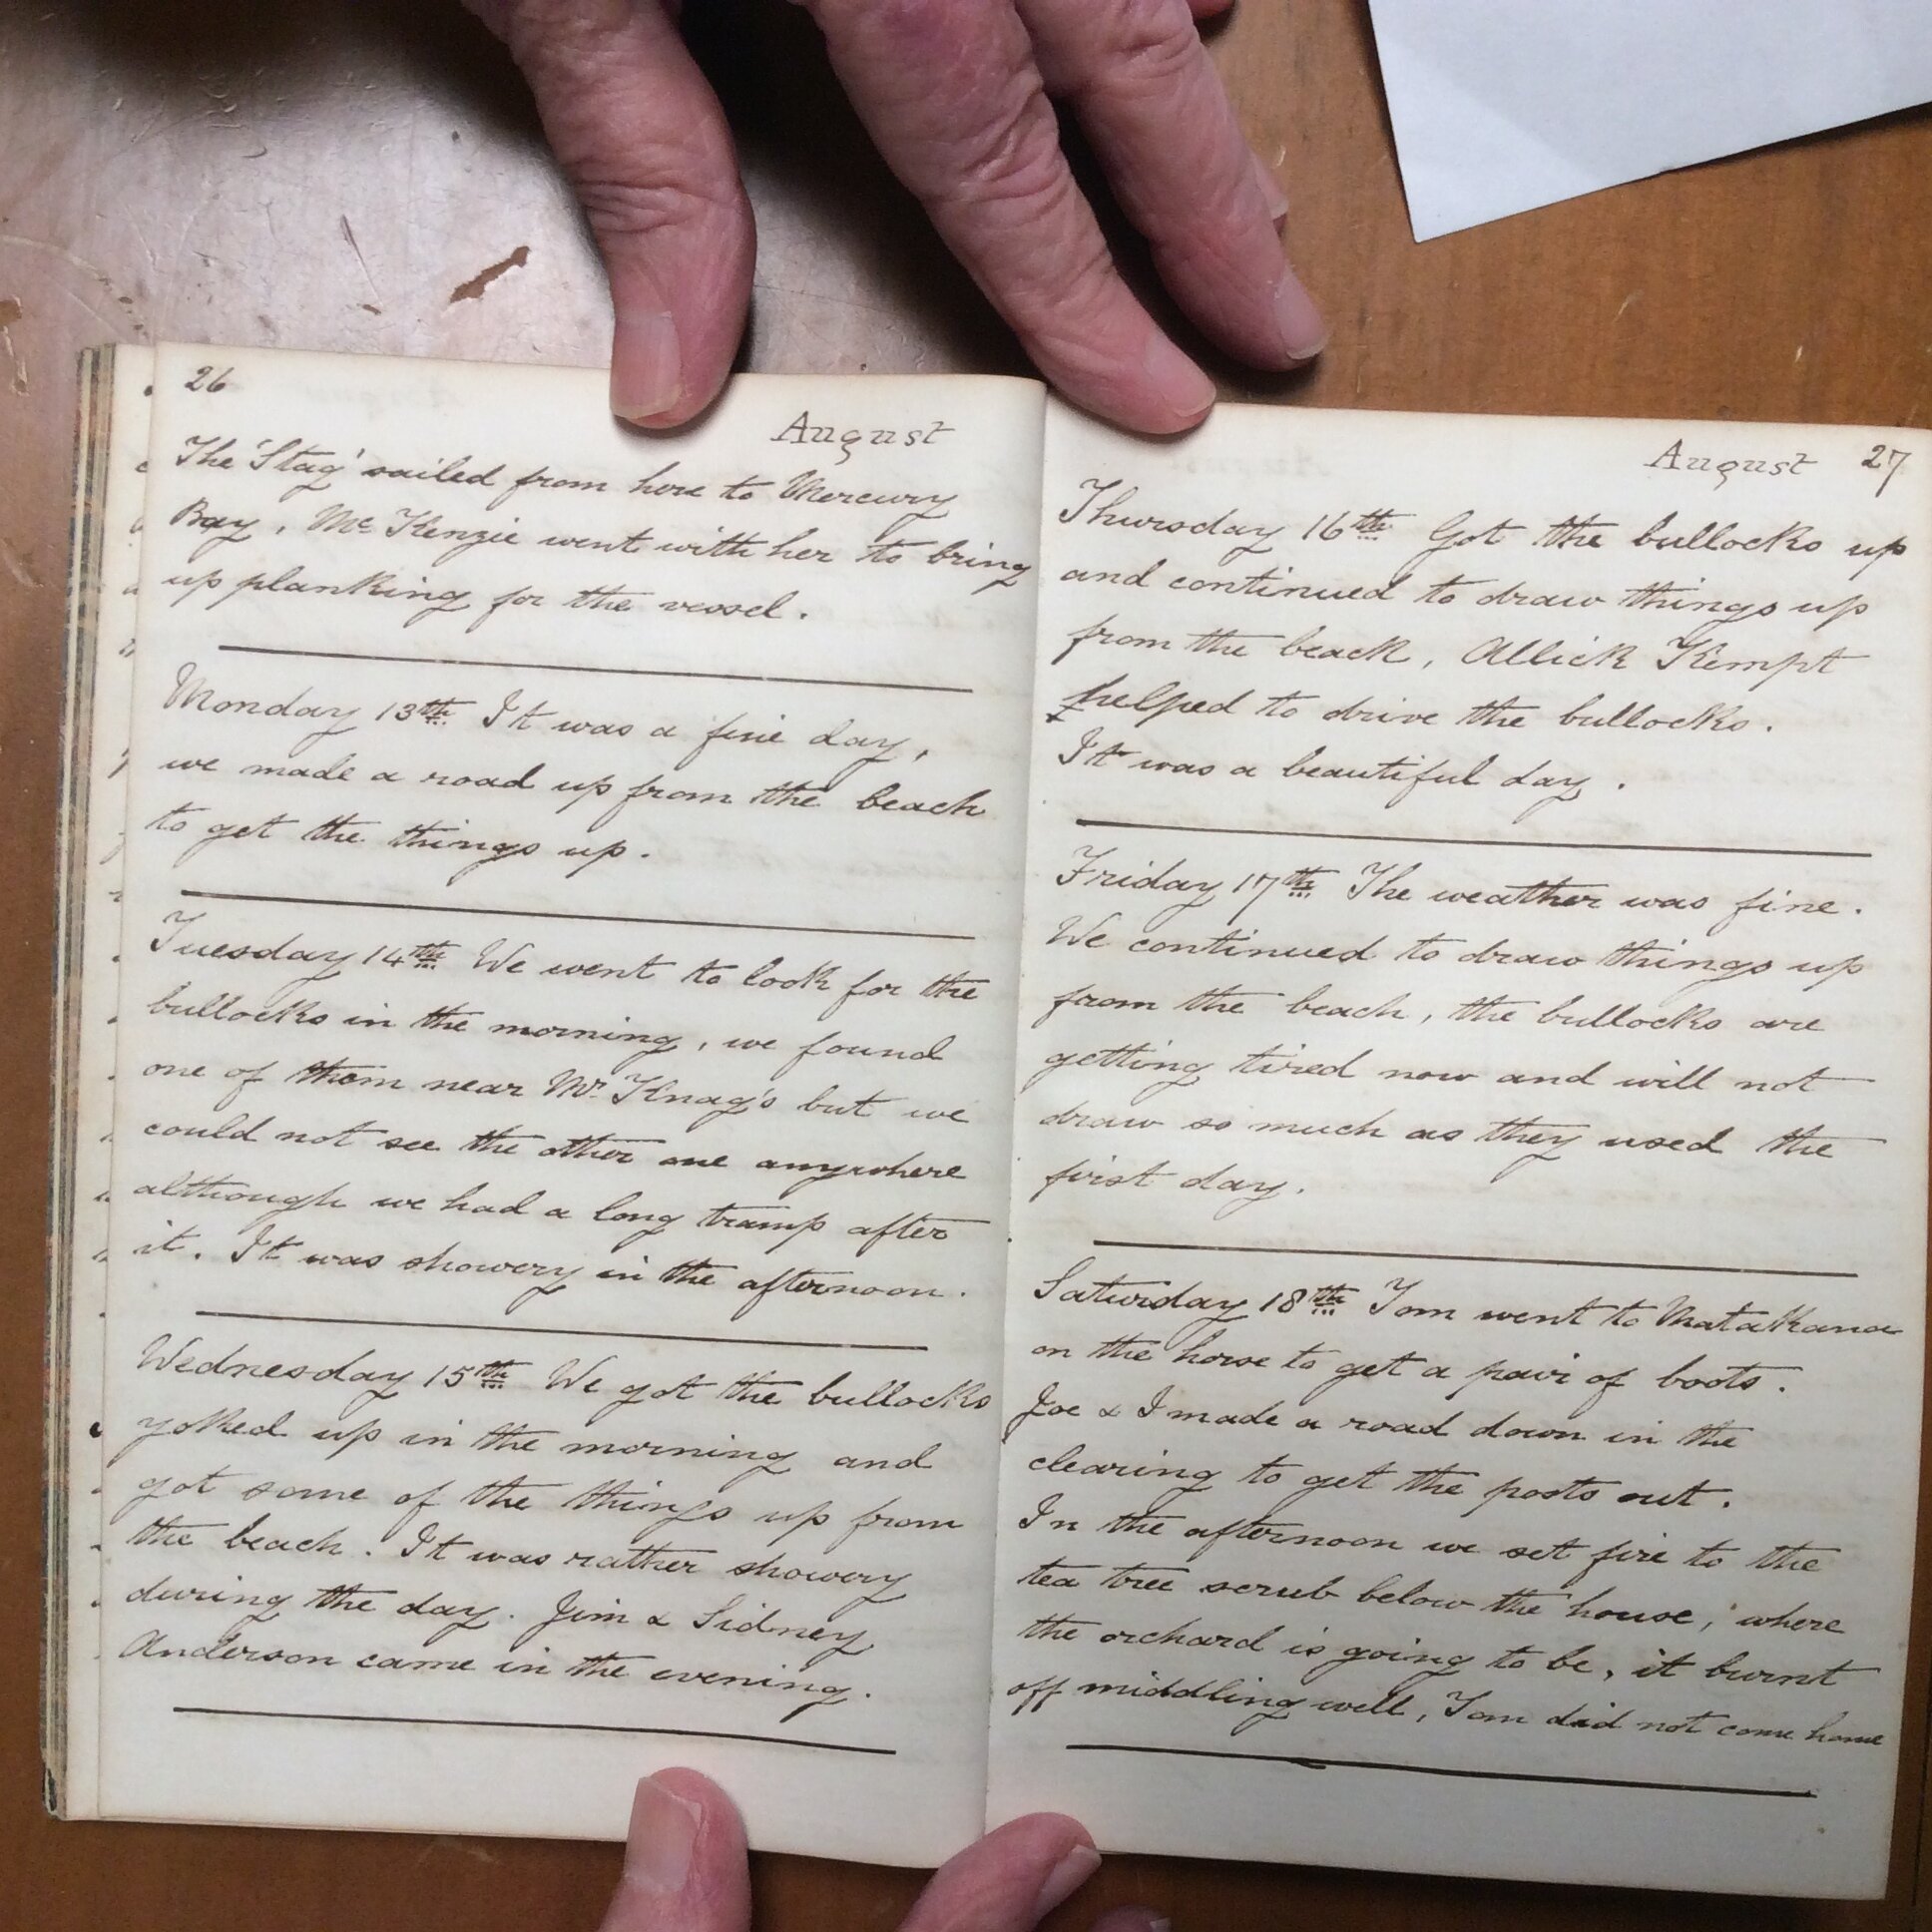 26
August
The 'Stag' sailed from here to Mercury
Bay, Mc Kenzie went with her to bring
up planking for the vessel.
Monday 13th It was a fine day,
we made a road up from the beach
to get the things up.
Tuesday 14th We went to look for the
bullocks in the morning, we found
one of them near Mr. Knag's but we
could not see the other one anywhere
although we had a long tramp after
it. It was showery in the afternoon.
Wednesday 15th We got the bullocks
yoked up in the morning and
got some of the things up from
the beach. It was rather showery
during the day. Jim & Sidney
Anderson came in the evening.
August 27
Thursday 16th Got the bullocks up
and continued to draw things up
from the beach, Allick Kempt
helped to drive the bullocks.
It was a beautiful day.
Friday 17th The weather was fine.
We continued to draw things up
from the beach, the bullocks are
getting tired now and will not
draw so much as they used the
first day.
Saturday 18th Tom went to Matakana
on the horse to get a pair of boots.
Joe & I made a road down in the
clearing to get the posts out.
In the afternoon we set fire to the
tea tree scrub below the house, where
the orchard is going to be, it burnt
off middling well, Tom did not come home